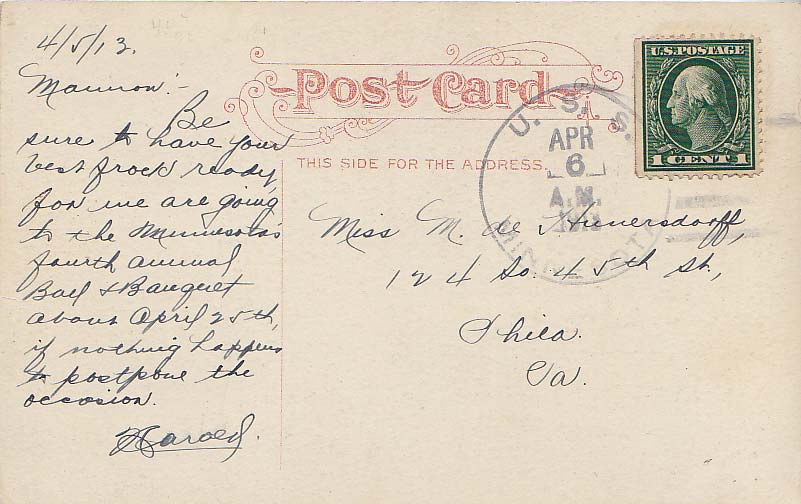 4/5/13.
Mannon:-
Be
sure to have your
best frock ready,
for we are going
to the Minnesota's
fourth annual
Ball & Banquet
about April 25th,
if nothing happens
to postpone the
occasion.
Harold.
Post Card
THIS SIDE FOR THE ADDRESS.
U.S. POSTAGE
1 CENT 1
U. S. S.
APR
6
A.M.
MINNESOTA
Miss M. de
124 So. 45th St.,
Phila.
Pa.